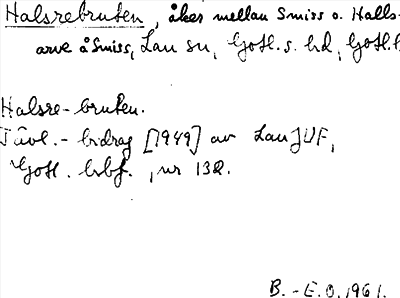 Halsrebruten, åker mellan Smiss o. Halls-
arve å Smiss, Lau sn, Gotl. s. hd, Gotl.
Halsre-bruten.
Tävl.-bidrag [1949] av Lau JUF,
Gotl. hbf., nr 132.
B.-E.O. 1961.